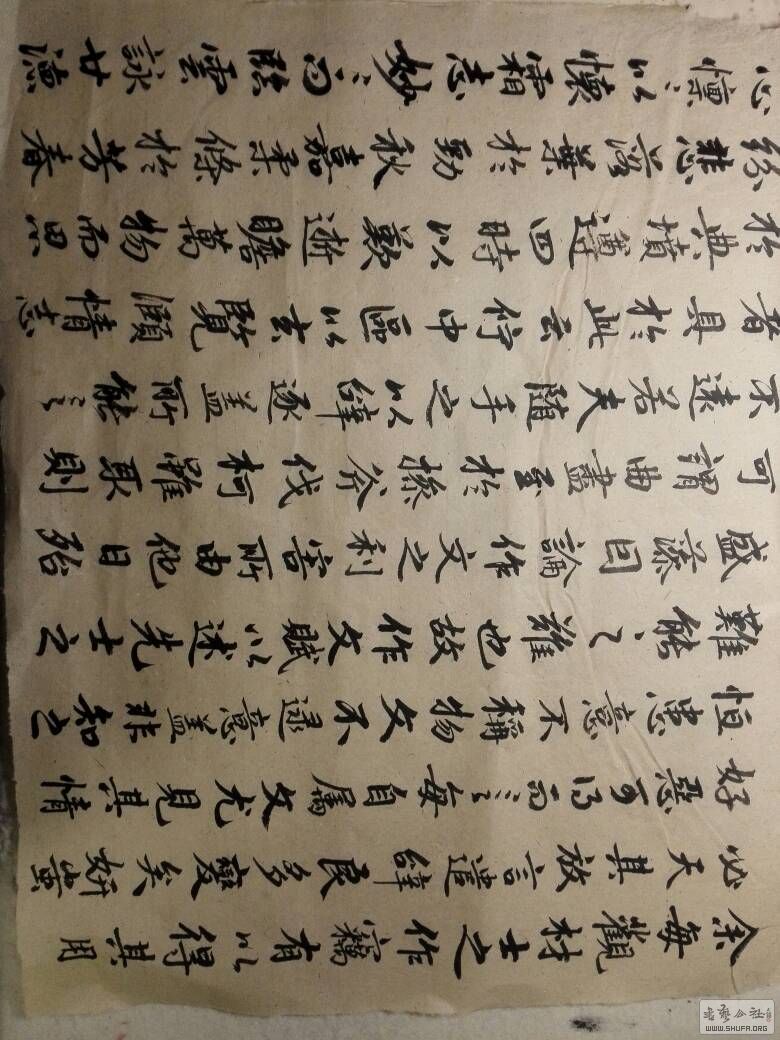 余每觀材士之作竊有以得其用
心夫其放言遣辞良多變矣妍蚩
好惡可得而言每自属文尤見其情
恒患意不稱物文不逮意盖非知之
難能之難也故作文賦以述先士之
盛藻因論作文之利害所由他日殆
可謂曲盡至於操斧伐柯雖取則
不遠若夫隨手之以辞逐盖所能言
者具於此云佇中區以玄覽頤情志
於典墳遵四時以歎逝瞻萬物而思
紛悲落葉於勁秋嘉柔條於芳春
心懔々以懷霜志妙々而臨雲詠世德
書藝公社
WWW.SHUFA.ORG